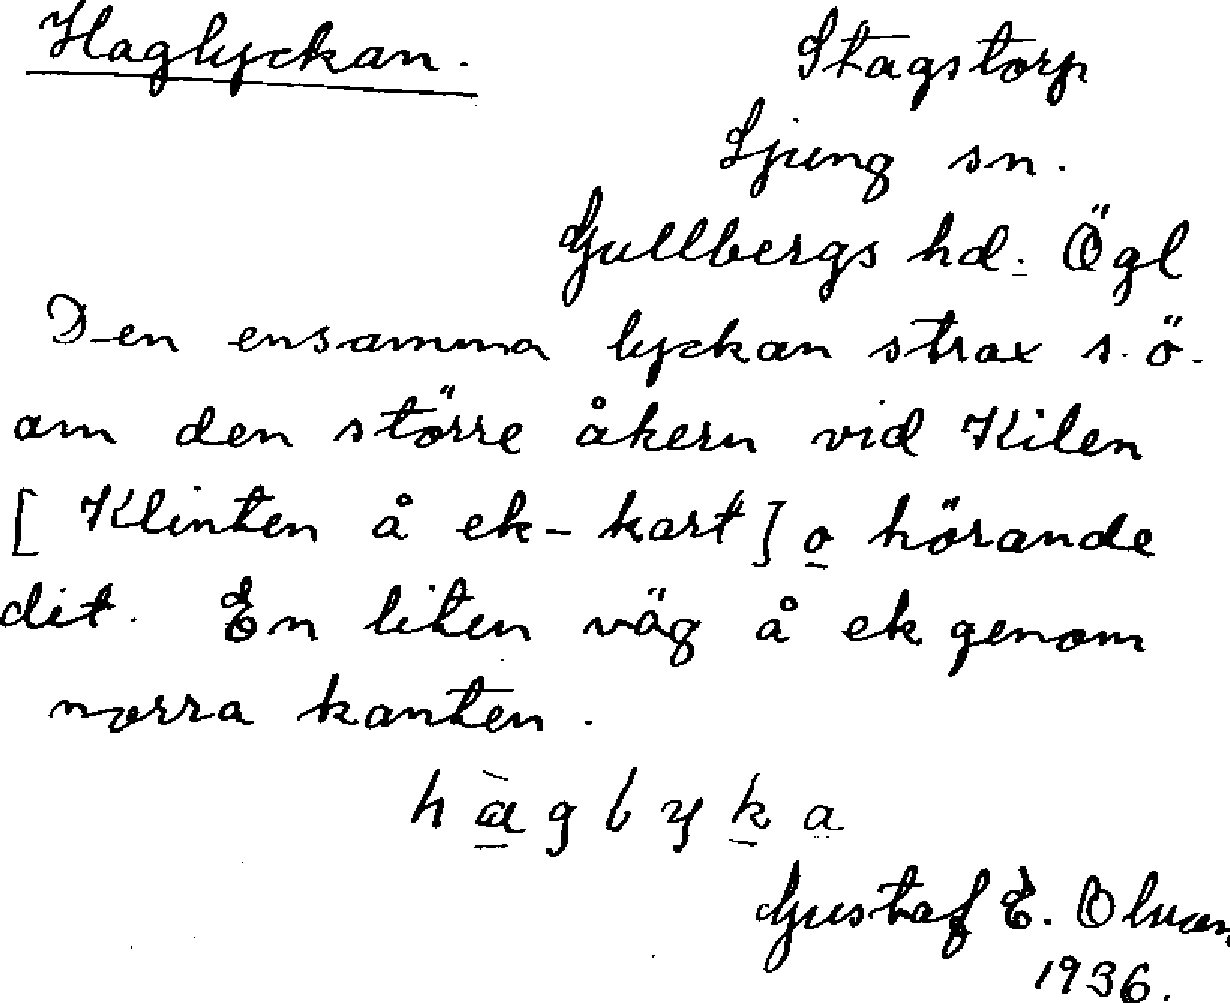 Haglyckan.
Stagstorp
Ljung sn.
Gullbergs hd. Ögl
Den ensamma lyckan strax s.ö.
om den större åkern vid Kilen
[Klinten å ek-kart] o hörande
dit. En liten väg å ek genom
norra kanten.
Gustaf E.
1936.